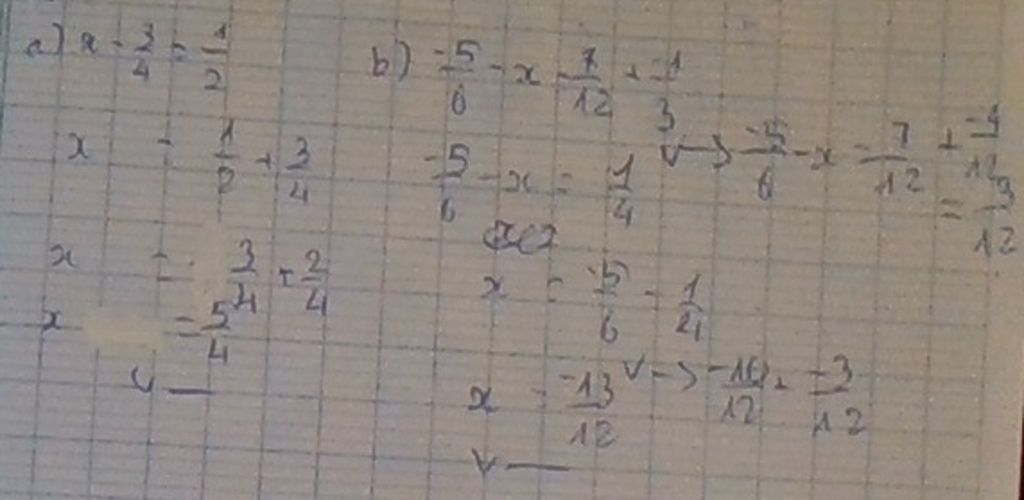 a) x - 3/4 = 1/2
x = 1/2 + 3/4
x = 3/4 + 2/4
x = 5/4
b) -5/6 - x = 7/12 + -1/3
-5/6 - x = 1/4 → -5/6 - x = 7/12 + -4/12
= 3/12
x = -5/6 - 1/4
x = -13/12 → -10/12 + -3/12